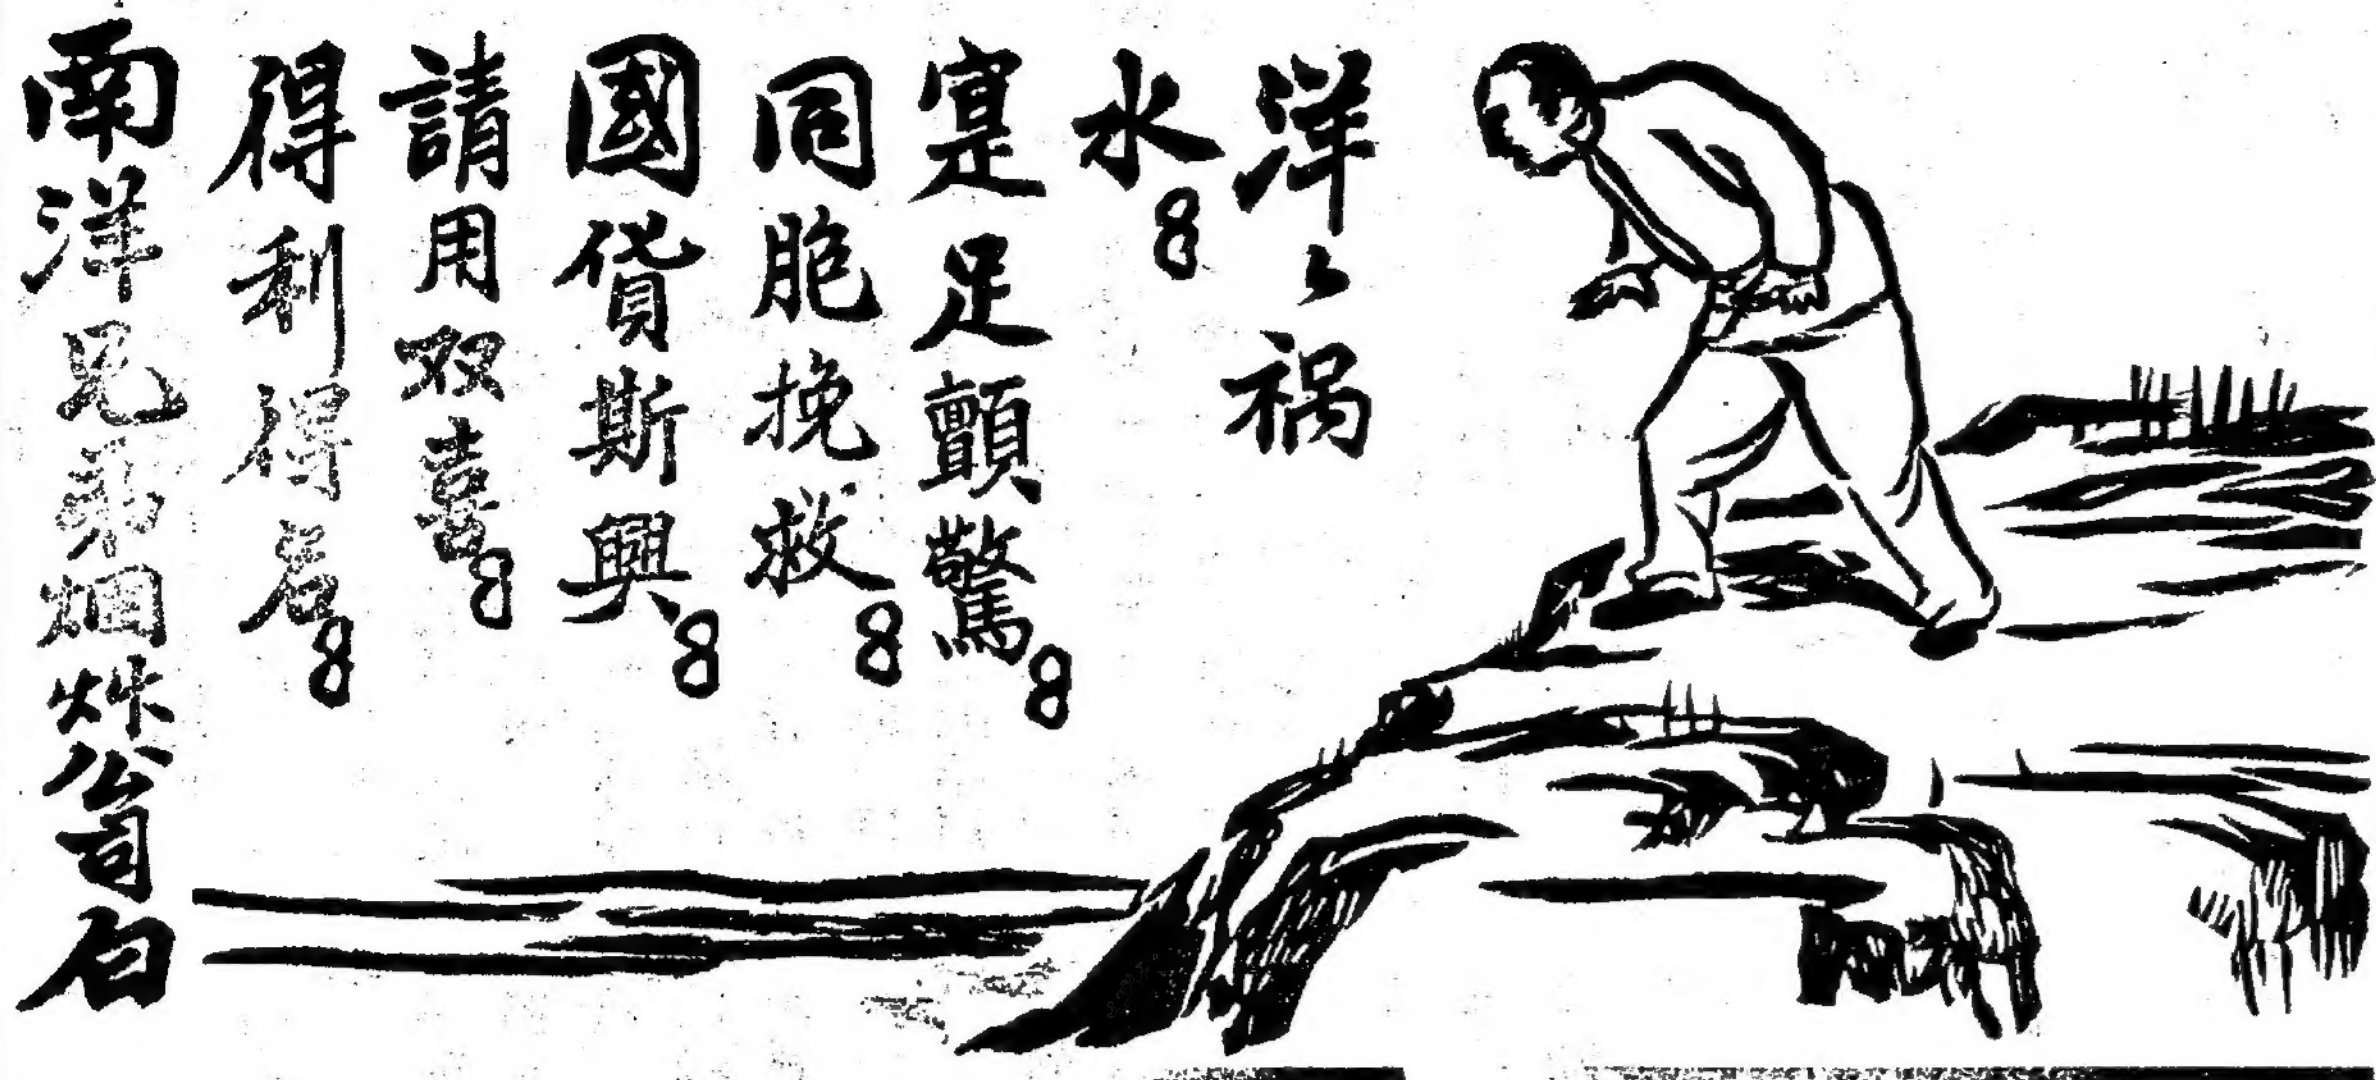 洋〻祸
水8
寔足顫驚8
同胞挽救8
國貨斯興8
請用双喜8
得利得名8
南洋兄弟烟艸公司白